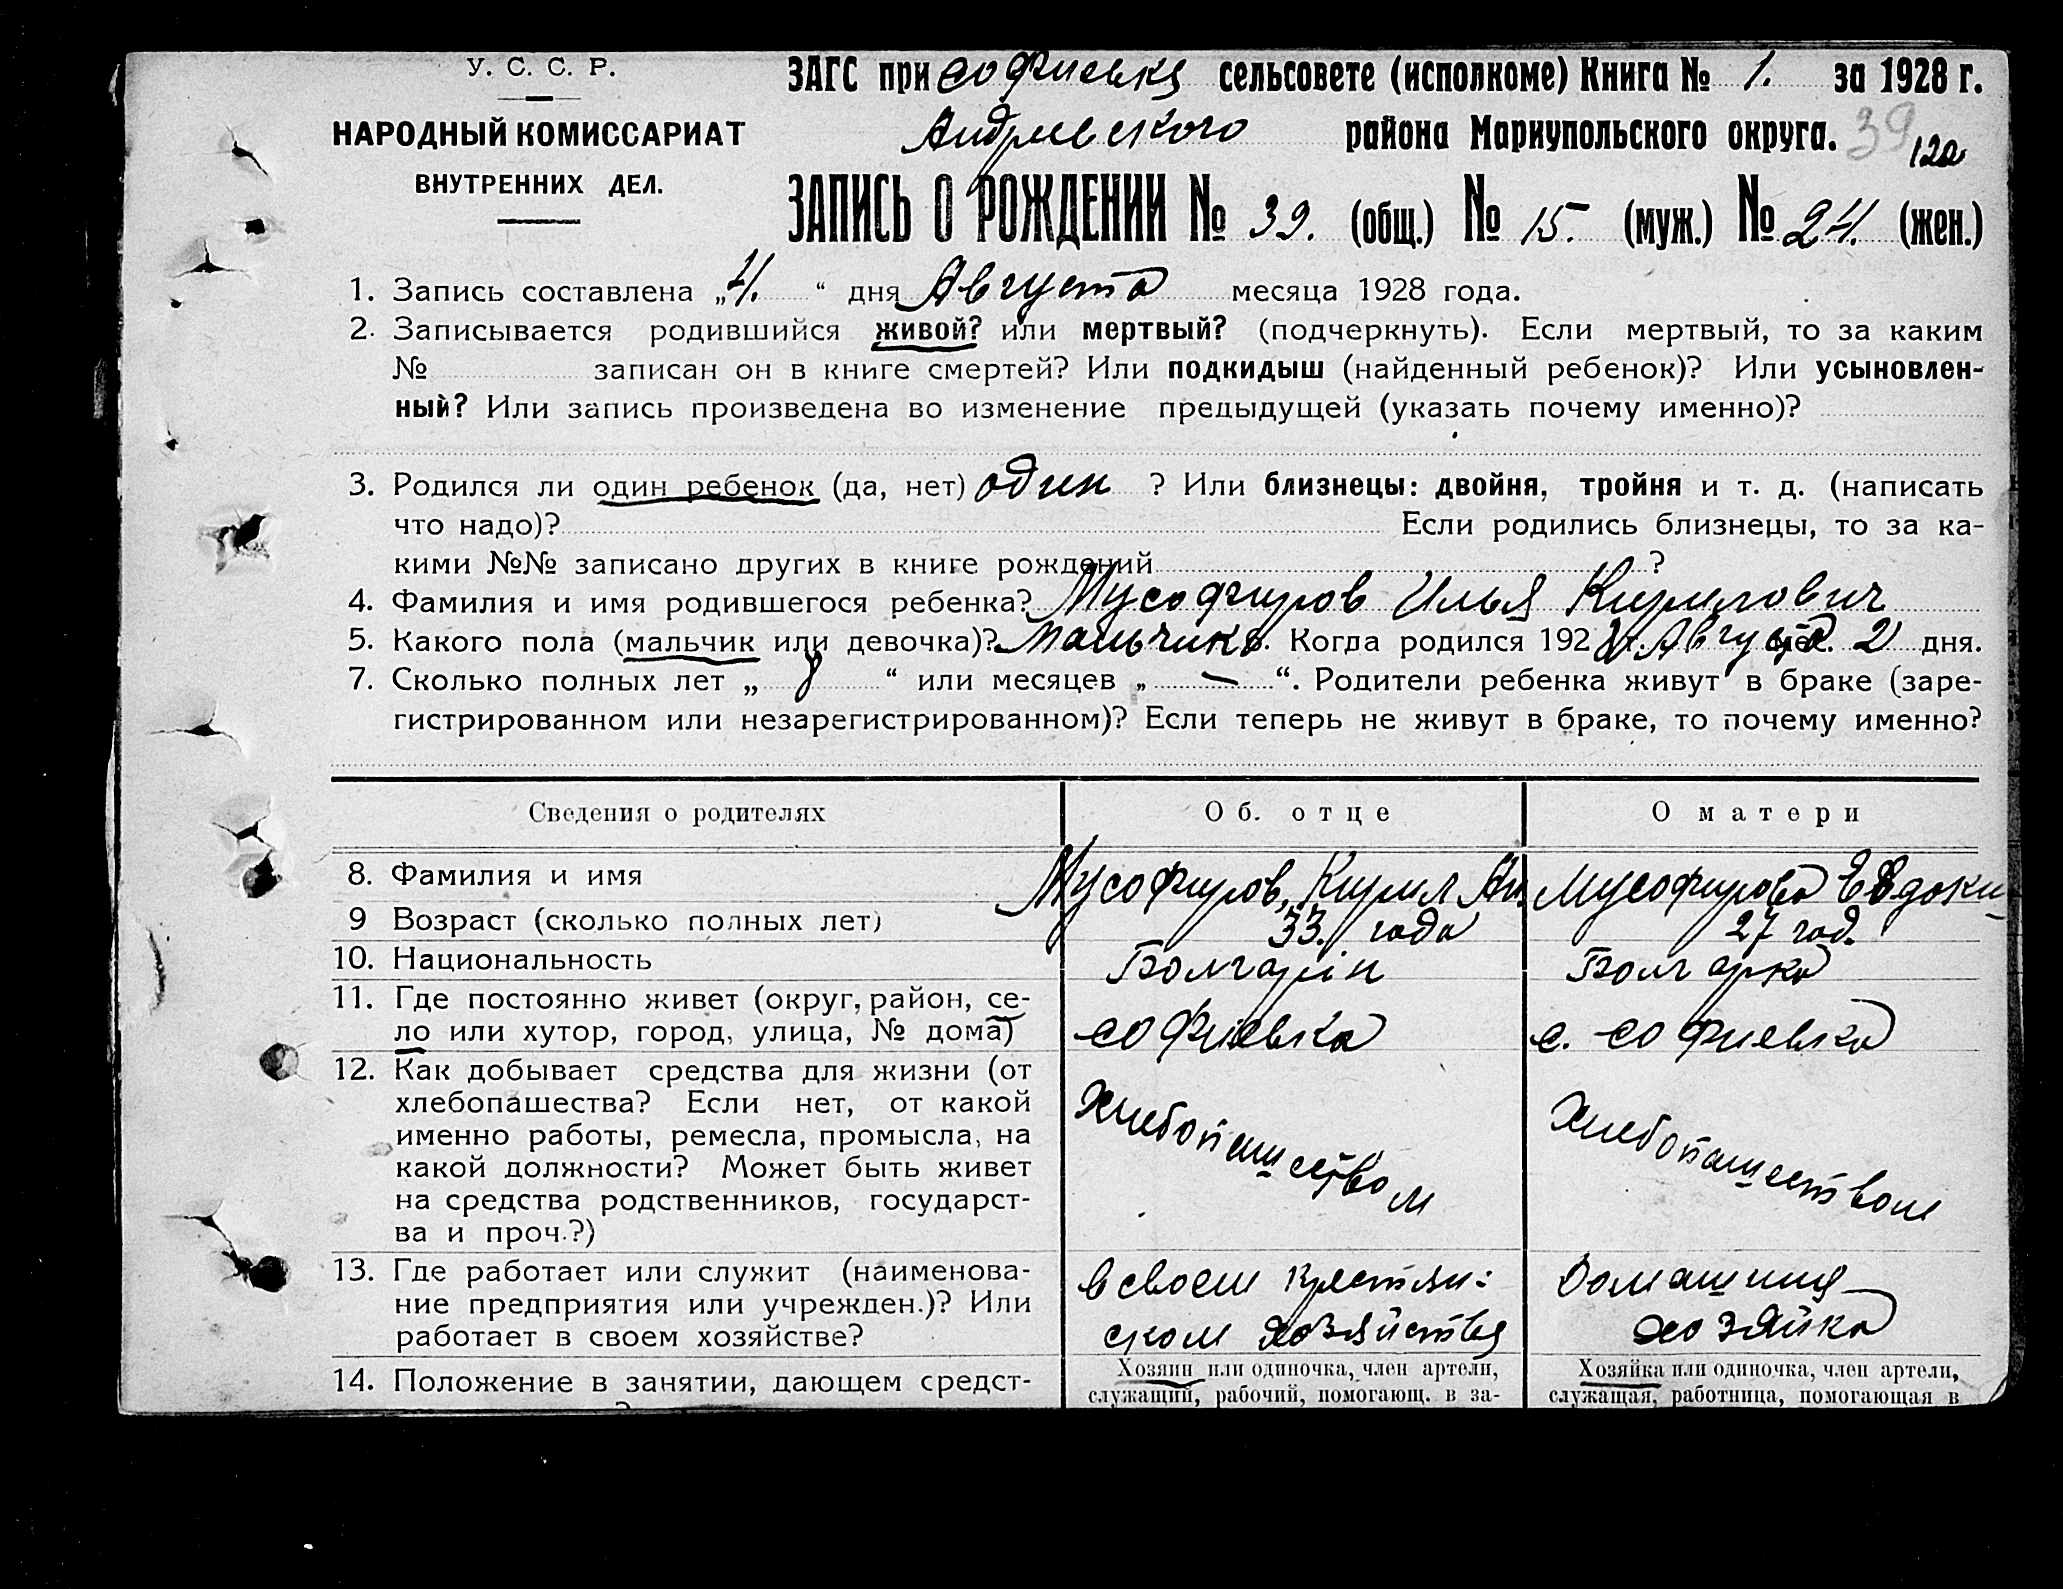 У. С. С. Р.
НАРОДНЫЙ КОМИССАРИАТ
ВНУТРЕННИХ ДЕЛ.
ЗАГС при софиевкя сельсовете (исполкоме) Книга № 1. за 1928 г.
Андриевского района Мариупольского округа. 39
ЗАПИСЬ О РОЖДЕНИИ № 39. (общ.) № 15. (муж.) № 24. (жен.)
1. Запись составлена „4. “ дня Августа месяца 1928 года.
2. Записывается родившийся живой? или мертвый? (подчеркнуть). Если мертвый, то за каким
№ записан он в книге смертей? Или подкидыш (найденный ребенок)? Или усыновлен-
ный? Или запись произведена во изменение предыдущей (указать почему именно)?
3. Родился ли один ребенок (да, нет) один ? Или близнецы: двойня, тройня и т. д. (написать
что надо)? Если родились близнецы, то за ка-
кими №№ записано других в книге рождений ?
4. Фамилия и имя родившегося ребенка? Мусофиров Илья Кирилович
5. Какого пола (мальчик или девочка)? Мальчик 6. Когда родился 192 г. Августа мес. 2 дня.
7. Сколько полных лет „ 8 “ или месяцев „ — “. Родители ребенка живут в браке (заре-
гистрированном или незарегистрированном)? Если теперь не живут в браке, то почему именно?
Сведения о родителях Об. отце О матери
8. Фамилия и имя Мусофиров, Кирил Ан. Мусофирова Евдоки-
9 Возраст (сколько полных лет) 33. года 27 год.
10. Национальность Болгарін Болгарка
11. Где постоянно живет (округ, район, се-
ло или хутор, город, улица, № дома) софиевка с. софиевка
12. Как добывает средства для жизни (от
хлебопашества? Если нет, от какой
именно работы, ремесла, промысла, на
какой должности? Может быть живет
на средства родственников, государст-
ва и проч.?)
Хлебопашеством Хлебопашеством
13. Где работает или служит (наименова-
ние предприятия или учрежден.)? Или
работает в своем хозяйстве?
в своем крестьян:
ском хозяйствя
домашния
хозяйка
14. Положение в занятии, дающем средст-
Хозяин или одиночка, член артели,
служащий, рабочий, помогающ. в за-
Хозяйка или одиночка, член артели,
служащая, работница, помогающая в